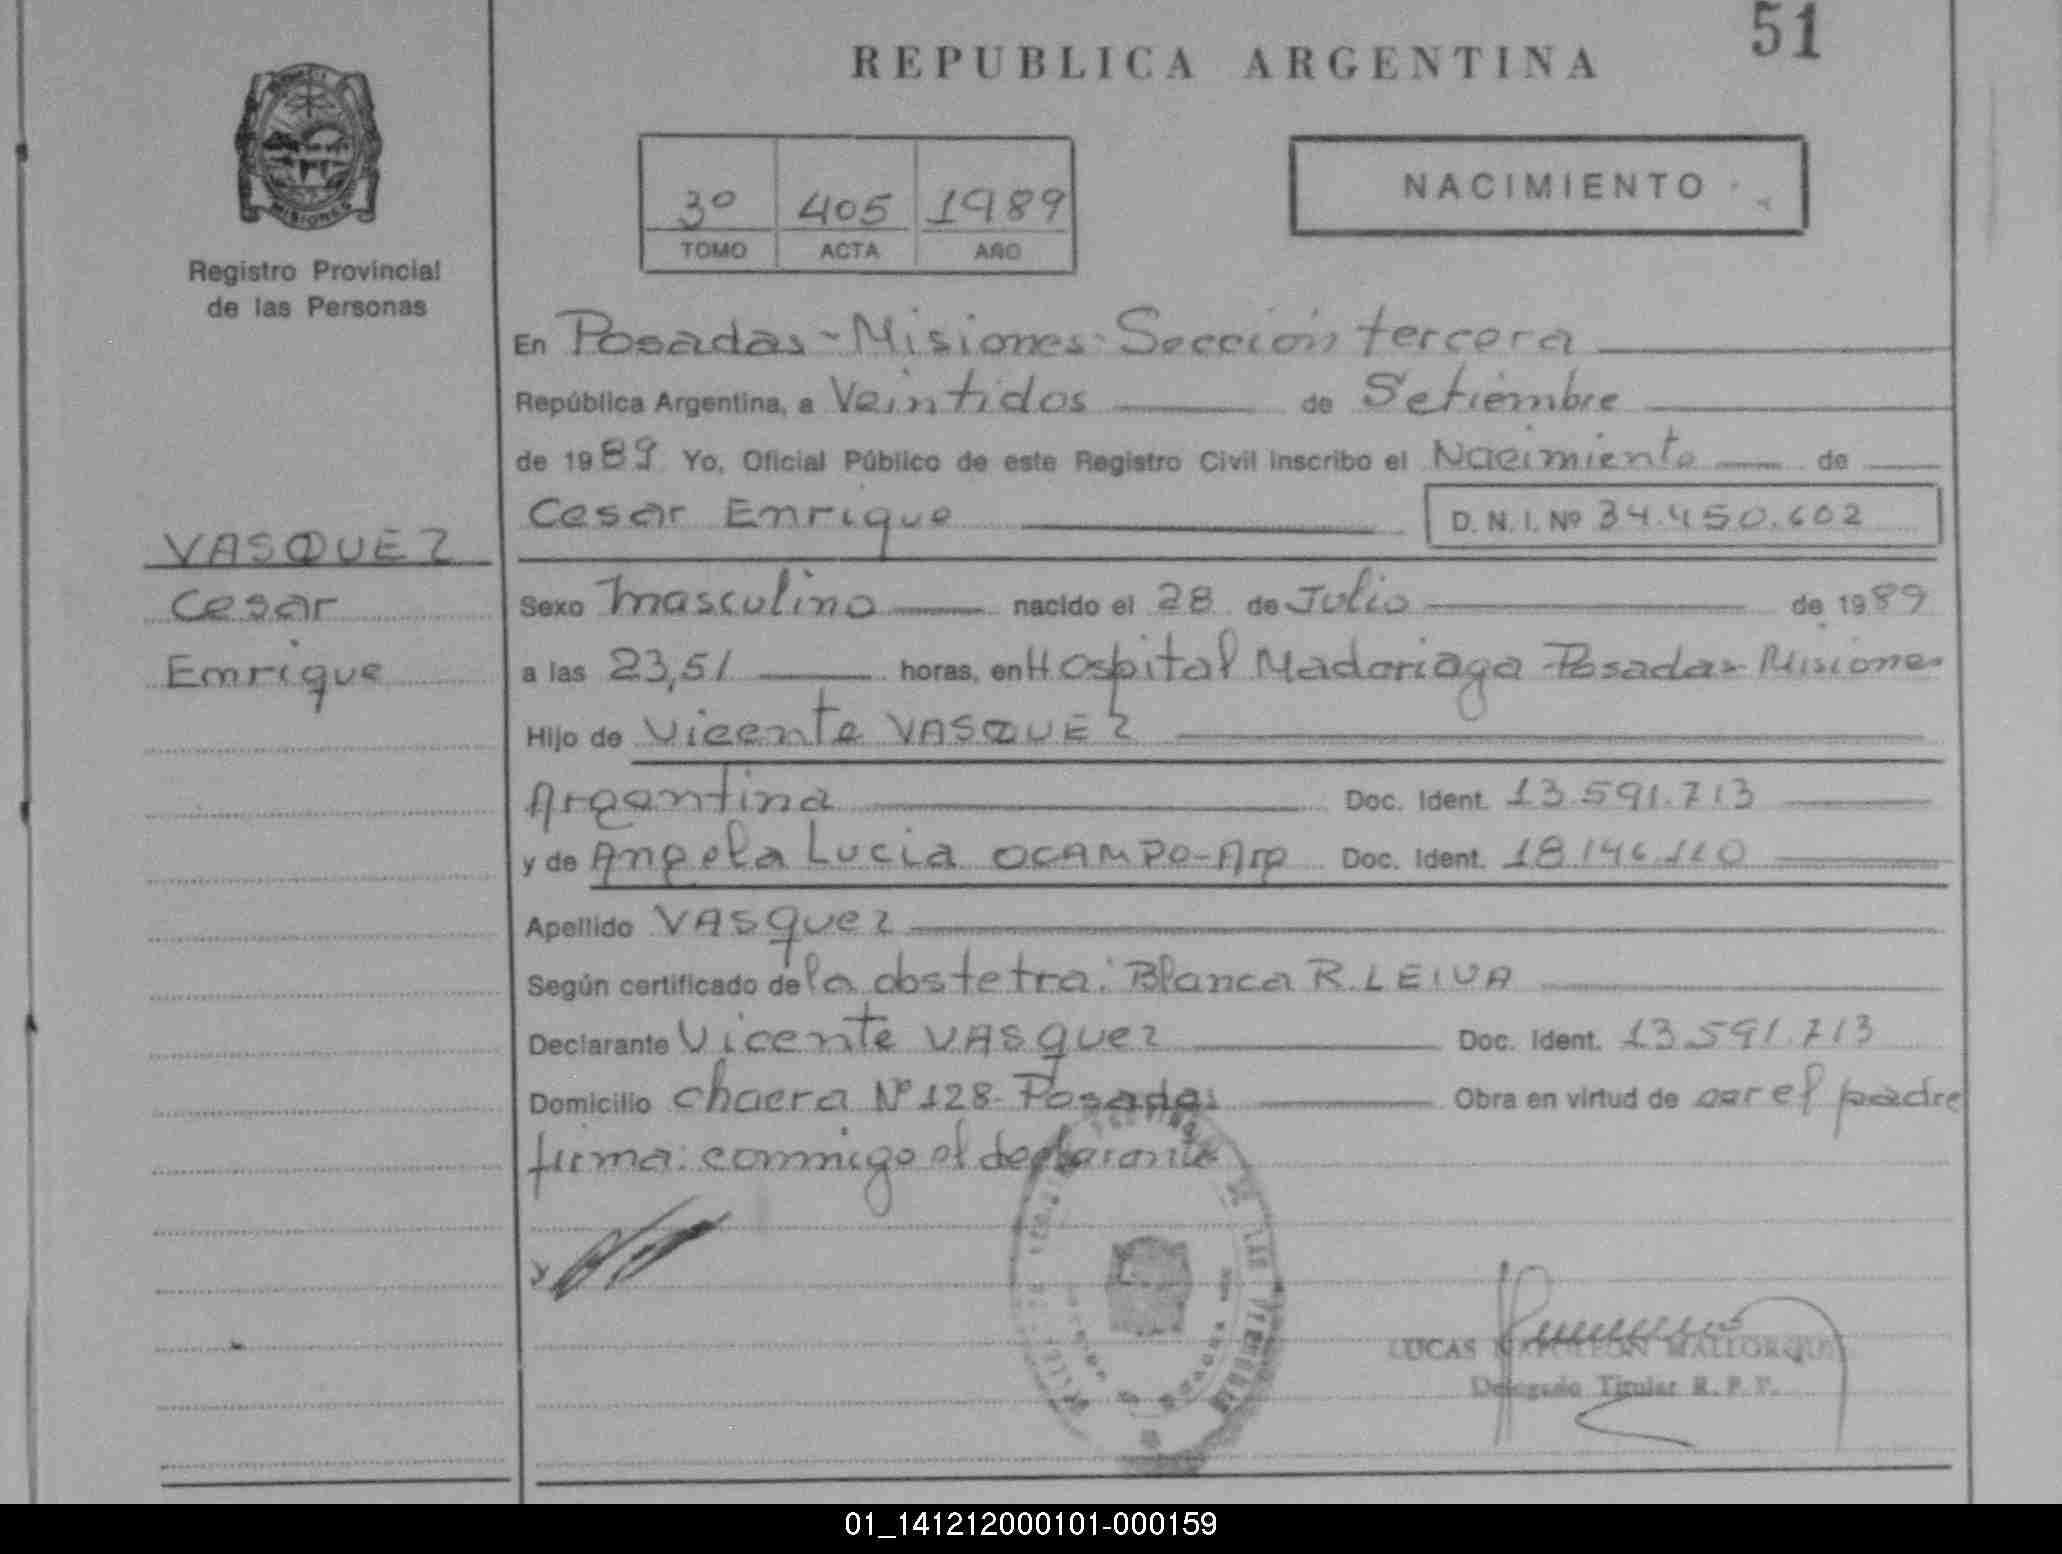 51
REPUBLICA ARGENTINA
MISIONES
Registro Provincial
de las Personas
3º 405 1989
TOMO ACTA AÑO
NACIMIENTO
En Posadas - Misiones - Sección tercera
República Argentina, a Veintidos de Setiembre
de 1989 Yo, Oficial Público de este Registro Civil inscribo el Nacimiento de
Cesar Enrique D.N.I. Nº 34.450.602
VASQUEZ
Cesar
Enrique
Sexo masculino nacido el 28 de Julio de 1989
a las 23,51 horas, en Hospital Madariaga - Posadas - Misiones
Hijo de Vicente VASQUEZ
Argentina Doc. Ident. 13.591.713
y de Angela Lucia OCAMPO - Arg Doc. Ident. 18.146.110
Apellido VASquez
Según certificado de la obstetra: Blanca R. LEIVA
Declarante Vicente VASquez Doc. Ident. 13.591.713
Domicilio chacra Nº 128 - Posadas Obra en virtud de ser el padre
firma: conmigo el declarante
LUCAS NAPOLEON MALLORQUIN
Delegado Titular R. P. P.
01_141212000101-000159